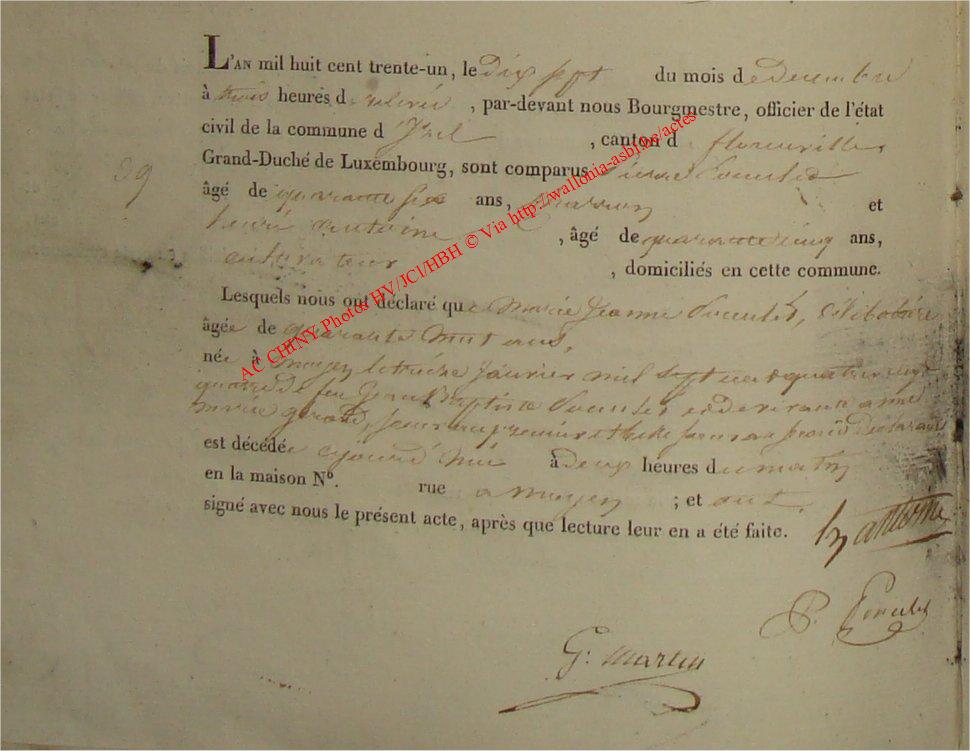 L'AN mil huit cent trente-un, le dix sept du mois de decembre
à trois heures de relevée, par-devant nous Bourgmestre, officier de l'état
civil de la commune d'Izel, canton de florenville,
Grand-Duché de Luxembourg, sont comparus Pierre
39
âgé de quarante six ans, et
henri antoine, âgé de quarante cinq ans,
cultivateur, domiciliés en cette commune.
Lesquels nous ont déclaré que Marie Jeanne, Célibataire
âgée de quarante huit ans,
née à moyen le treize Janvier mil sept cent quatre vingt
quatre de feu Jean Baptiste et de vivante anne
marie gerard, soeur au premier et belle soeur au second declarant
est décédée cejourd'hui à deux heures du matin
en la maison N°. rue a moyen ; et ont
signé avec nous le présent acte, après que lecture leur en a été faite.
hy antoine
P.
G. Martin
AC CHINY Photos HV/JCI/HBH © Via http://wallonia-asbl.be/actes